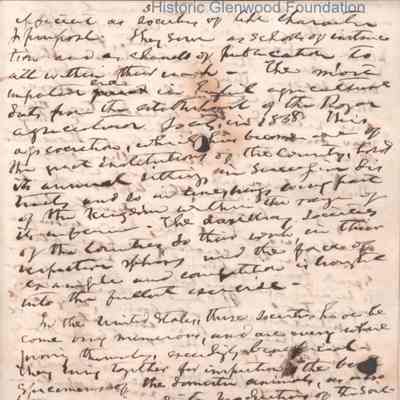 Historic Glenwood Foundation
efficient as societies of like character
& purpose. They serve as schools of instruc
tion and as channels of publication to
all within their reach – The most
important era in English agriculture
dates from the establishment of the Royal
Agricultural Society, in 1838. This
association, which has become one of
the great institutions of the Country, holds
its annual sittings in successive dis
tricts and so in time brings every part
of the Kingdom within the range of
its influence. The auxiliary societies
of the Counties do their work in their
respective spheres and the force of
example and competition is brought
into the fullest exercise –
In the United States, these Societies have be
come very numerous, and are every where
proving themselves exceedingly beneficial.
They bring together for inspection the best
specimens of the domestic animals, as also
the productions of the Soil